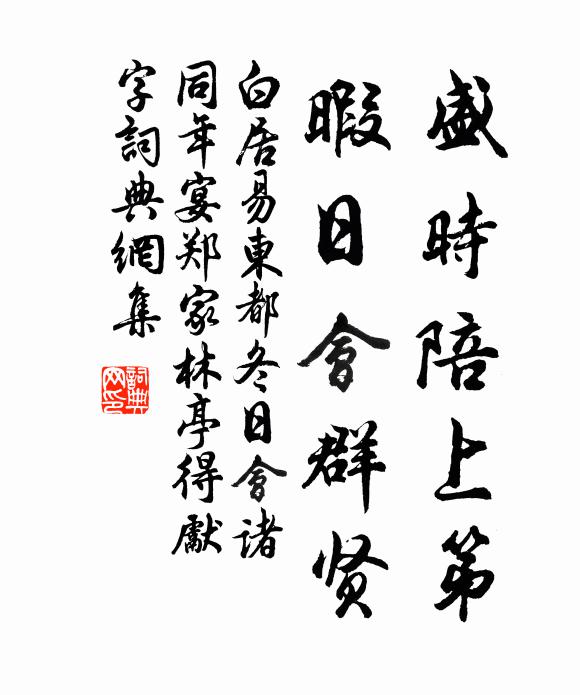 盛時陪上第
暇日會群贤
白居易東都冬日會諸
同年宴郑家林亭得獻
字詞典網集
詞典网印